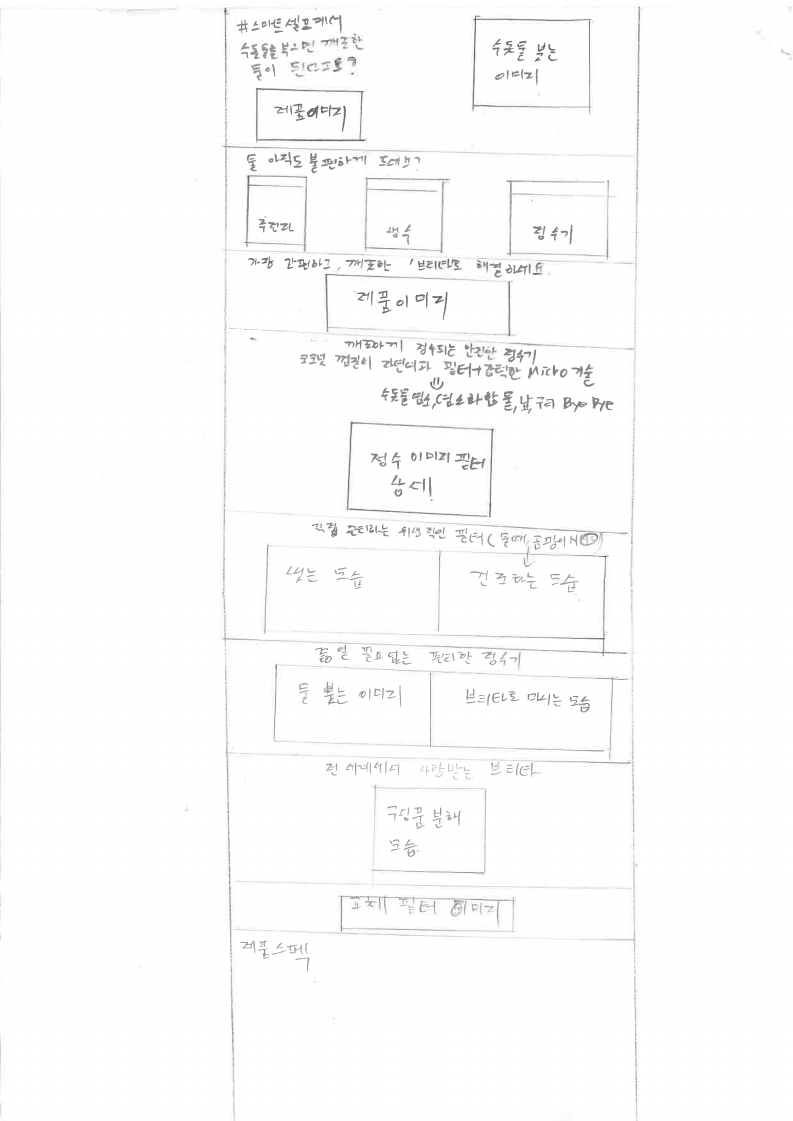 #스마트셀프케어
수돗물을 부으면 깨끗한
물이 된다고요?
수돗물 붓는
이미지
제품이미지
물 아직도 불편하게 드세요?
주전자
생수
정수기
가장 간편하고, 깨끗한 '브리타로 해결하세요.
제품이미지
깨끗하게 정수되는 안전한 정수기
코코넛 껍질의 천연여과 필터+강력한 Micro 기술
수돗물 염소, 염소화합물, 납, 구리 Bye Bye
정수 이미지 필터
상세!
직접 관리하는 위생적인 필터( 물때, 곰팡이 NO)
씻는 모습
건조하는 모습
끓일 필요 없는 편리한 정수기
물 붓는 이미지
브리타로 마시는 모습
전 세계에서 사랑받는 브리타
구성품 분해
모습
교체 필터 이미지
제품스펙